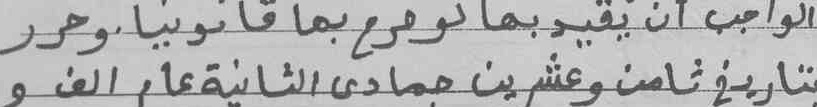 الواجب ان يقيد بها لو صرح بها قانونيا. وحرر
بتاريخ ثامن وعشرين جمادى الثانية عام الف و